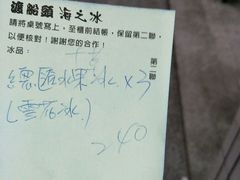 渡船頭 海之冰
請將桌號寫上，至櫃前結帳，保留第二聯
以便核對！謝謝您的合作！
冰品：
第二聯
總匯水果冰 x3
(雪花冰)
240